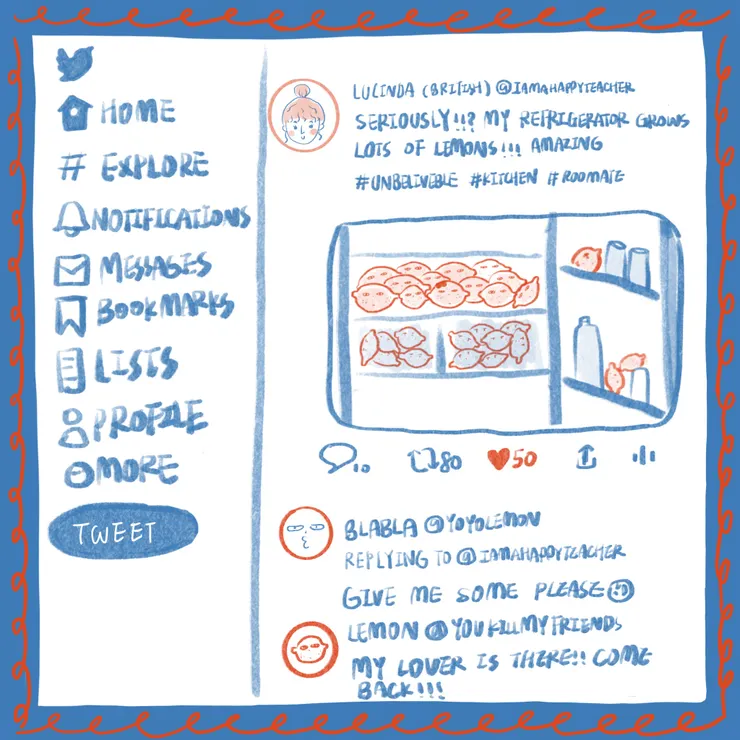 HOME
# EXPLORE
NOTIFICATIONS
MESSAGES
BOOKMARKS
LISTS
PROFILE
MORE
TWEET
LUCINDA (BRITISH) @IAMAHAPPYTEACHER
SERIOUSLY!!? MY REFRIGERATOR GROWS
LOTS OF LEMONS!!! AMAZING
#UNBELIVEBLE #KITCHEN #ROOMATE
10 80 50
BLABLA @YOYOLEMON
REPLYING TO @IAMAHAPPYTEACHER
GIVE ME SOME PLEASE
LEMON @YOUKILLMYFRIENDS
MY LOVER IS THERE!! COME
BACK!!!